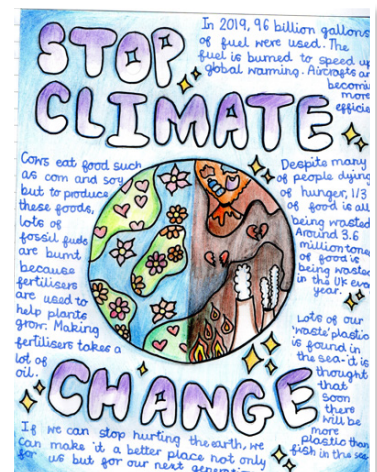 STOP
CLIMATE
In 2019, 96 billion gallons
of fuel were used. The
fuel is burned to speed up
global warming. Aircrafts ar
becomi
more
efficie
Cows eat food such
as corn and soy
but to produce
these foods,
lots of
fossil fuels
are burnt
because
fertilisers
are used to
help plants
grow. Making
fertilisers takes a
lot of
oil.
Despite many
of people dying
of hunger, 1/3
of food is all
being wasted
Around 3.6
million tone
of food is
being wasted
in the UK eve
year.
Lots of our
'waste' plastic
is found in
the sea - it is
thought
that
soon
there
will be
more
plastic than
fish in the sea
CHANGE
If we can stop hurting the earth, we
can make it a better place not only
for us but for our next generation